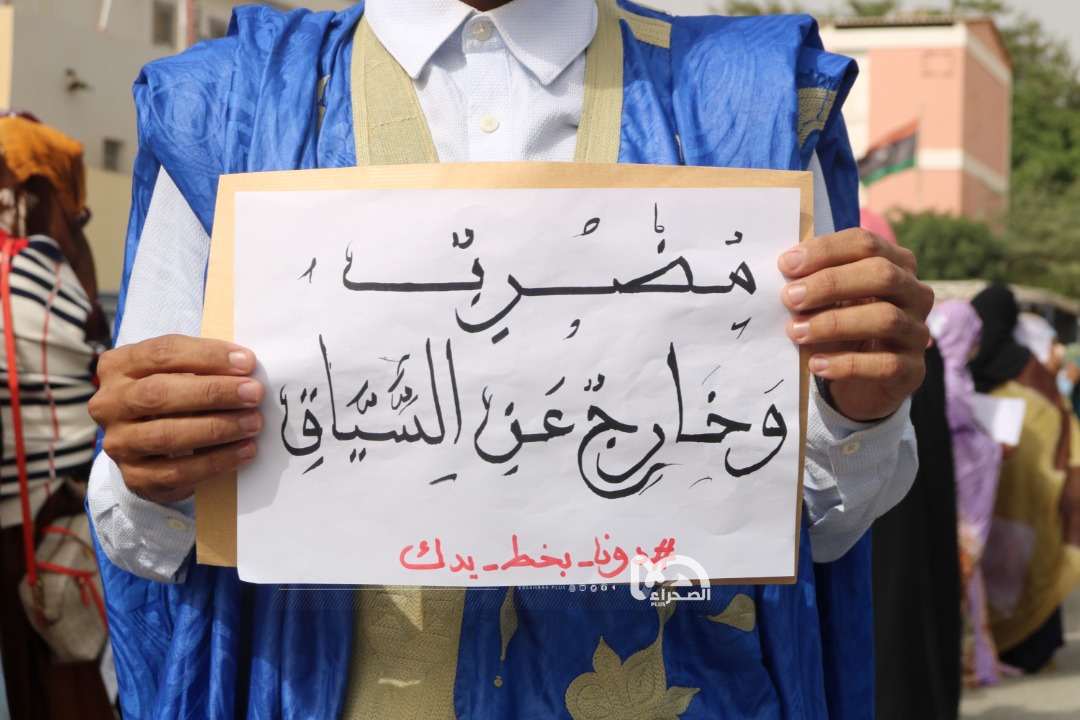 مُضْرِبٌ
وَخَارِجٌ عَنِ السِّيَاقِ
#دونا_بخط_يدك
الصحراء
PLUS